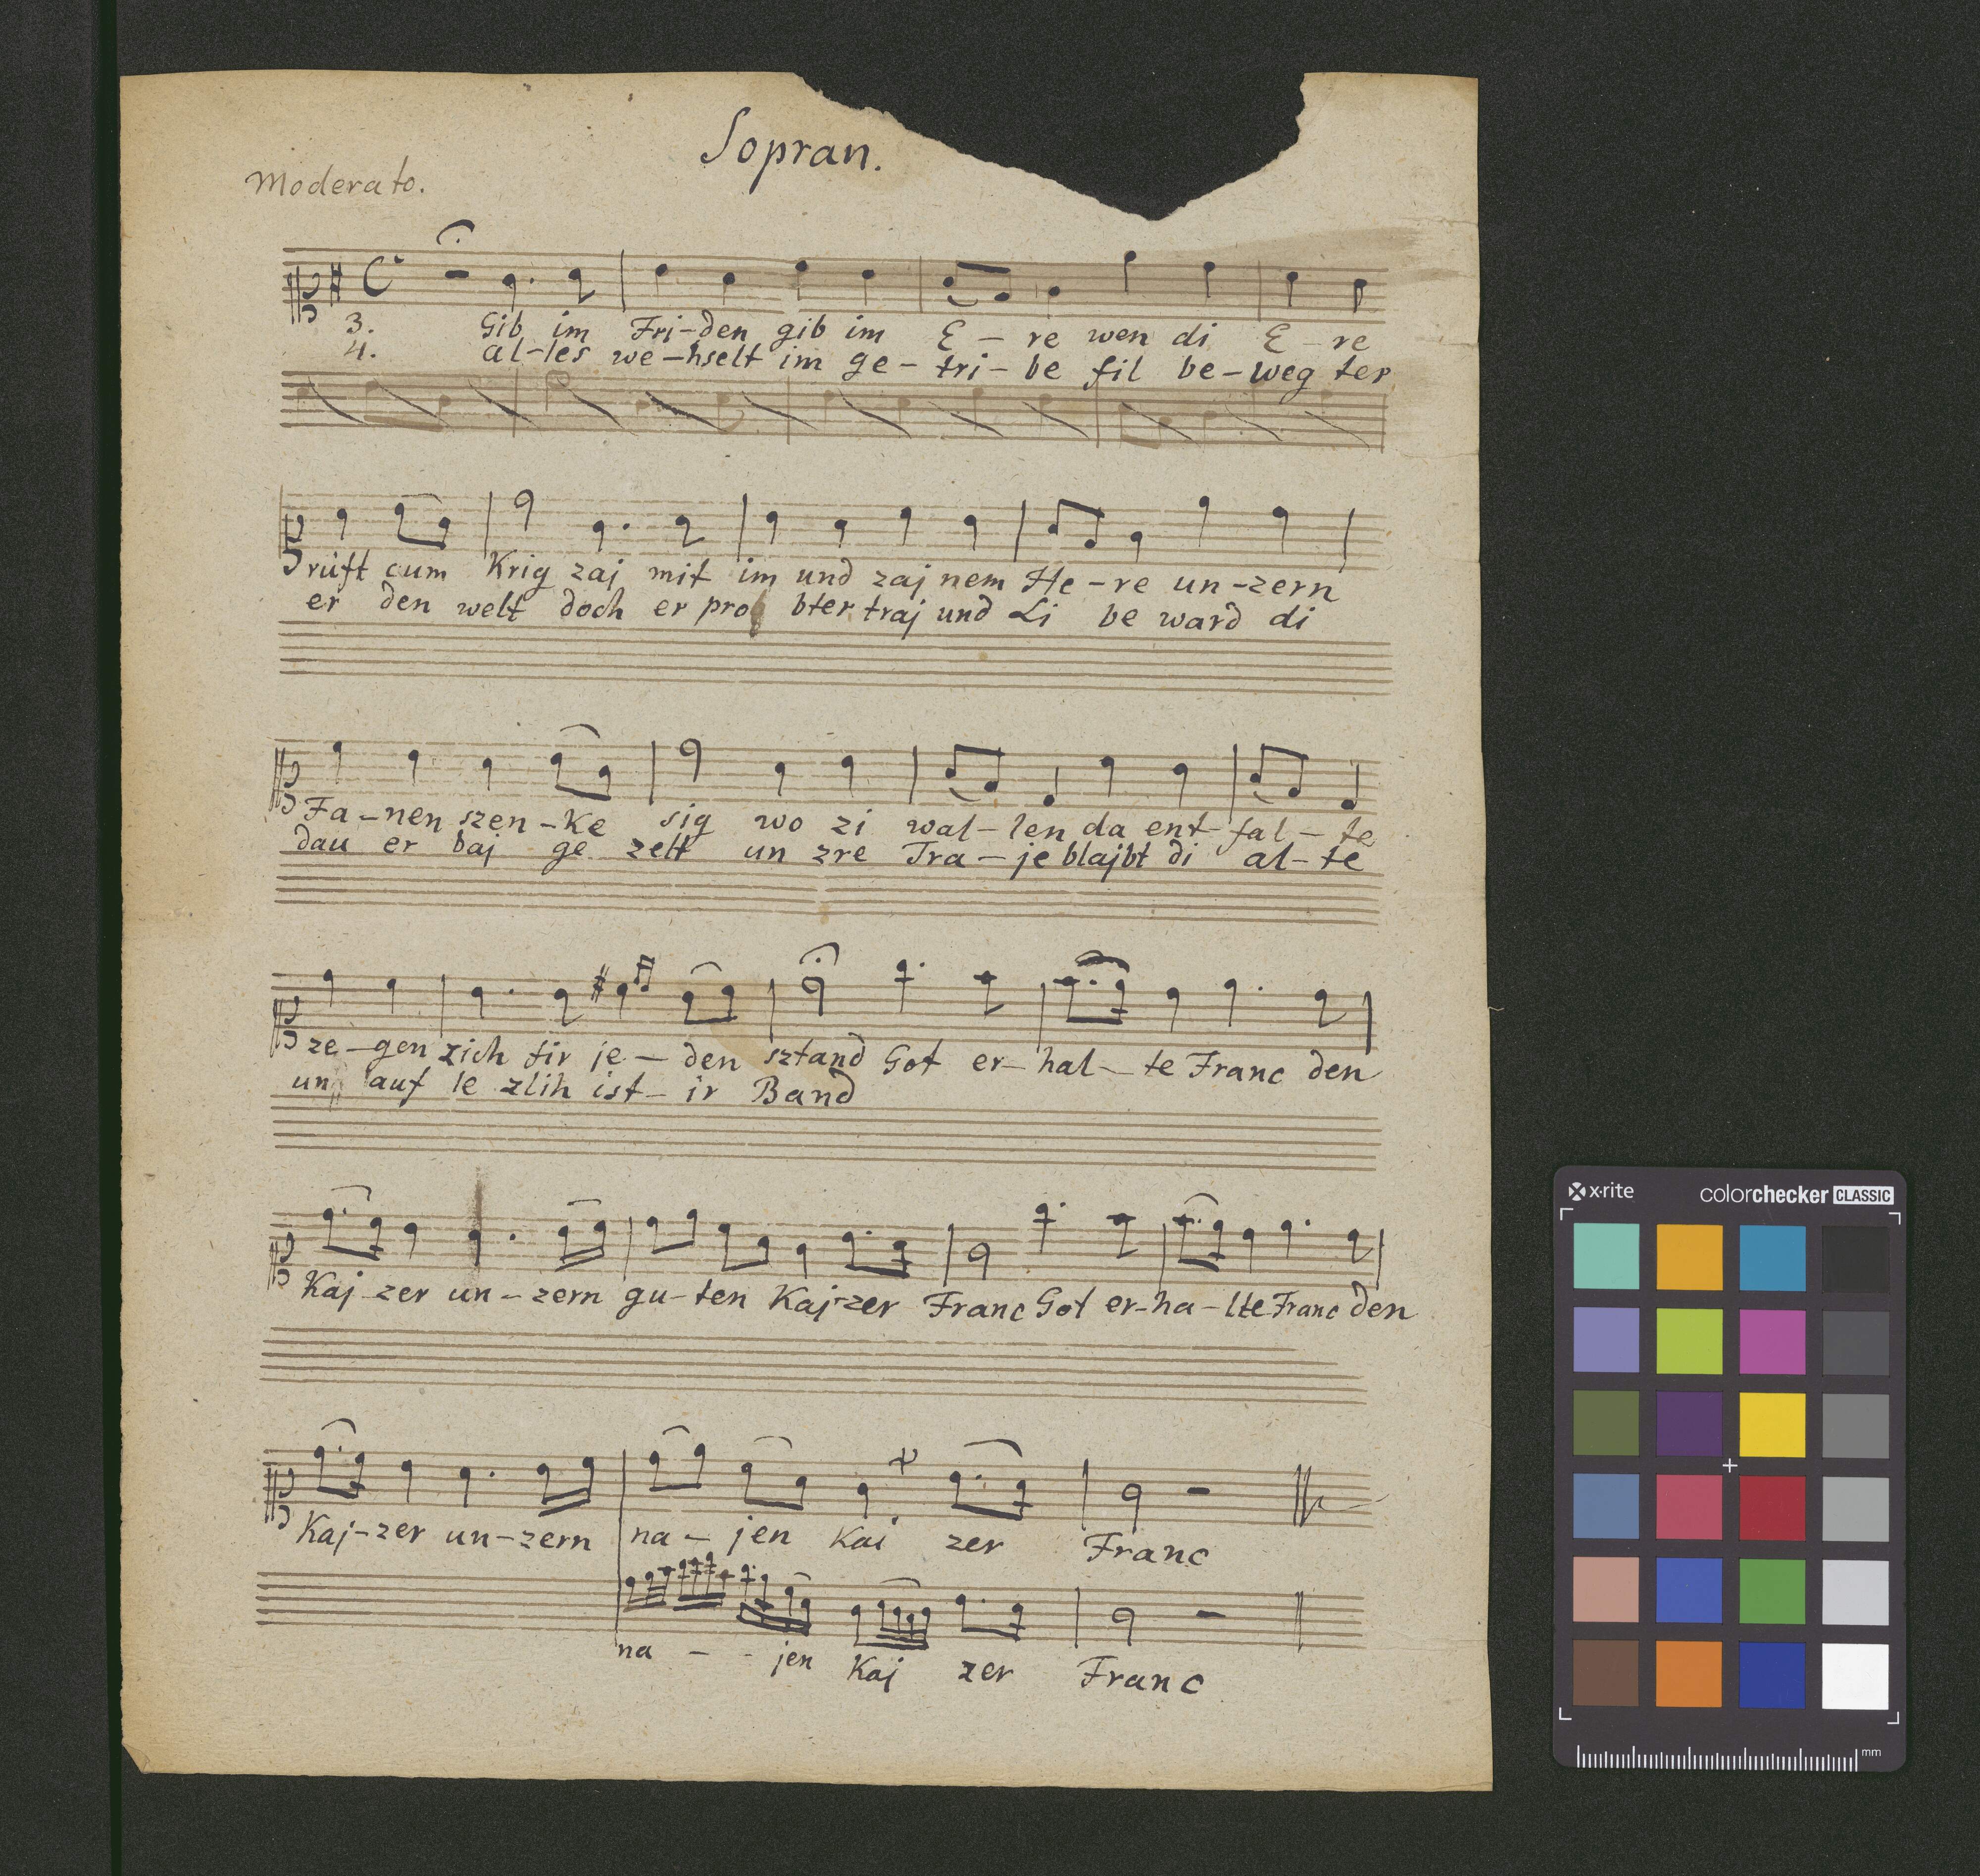 Sopran.
Moderato.
3. Gib im Fri-den gib im E - re wen di E - re
4. al-les we-hselt im ge-tri-be fil be-weg ter
rüft cum Krig zaj mit im und zaj nem He-re un-zern
er den welt doch er pro bter traj und Li be ward di
Fa-nen szen-ke sig wo zi wal-len da ent-fal-te
dau er baj ge zelt un zre Tra-je blajbt di al-te
ze-gen zich fir je-den sztand Got er-hal-te Franc den
un auf le zlih ist-ir Band
Kaj-zer un-zern gu-ten Kaj-zer Franc Got er-ha-lte Franc den
Kaj-zer un-zern na-jen Kai zer Franc
na - - jen Kaj zer Franc
x-rite colorchecker CLASSIC
mm